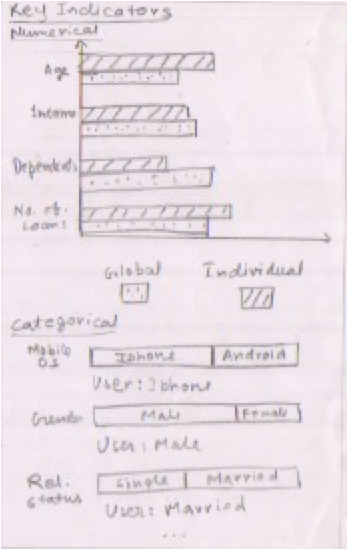 Key Indicators
Numerical
Age
Income
Dependents
No. of.
Loans
Global Individual
Categorical
Mobile Iphone Android
OS
User: Iphone
Gender Male Female
User: Male
Rel. Single Married
status
User: Married
...